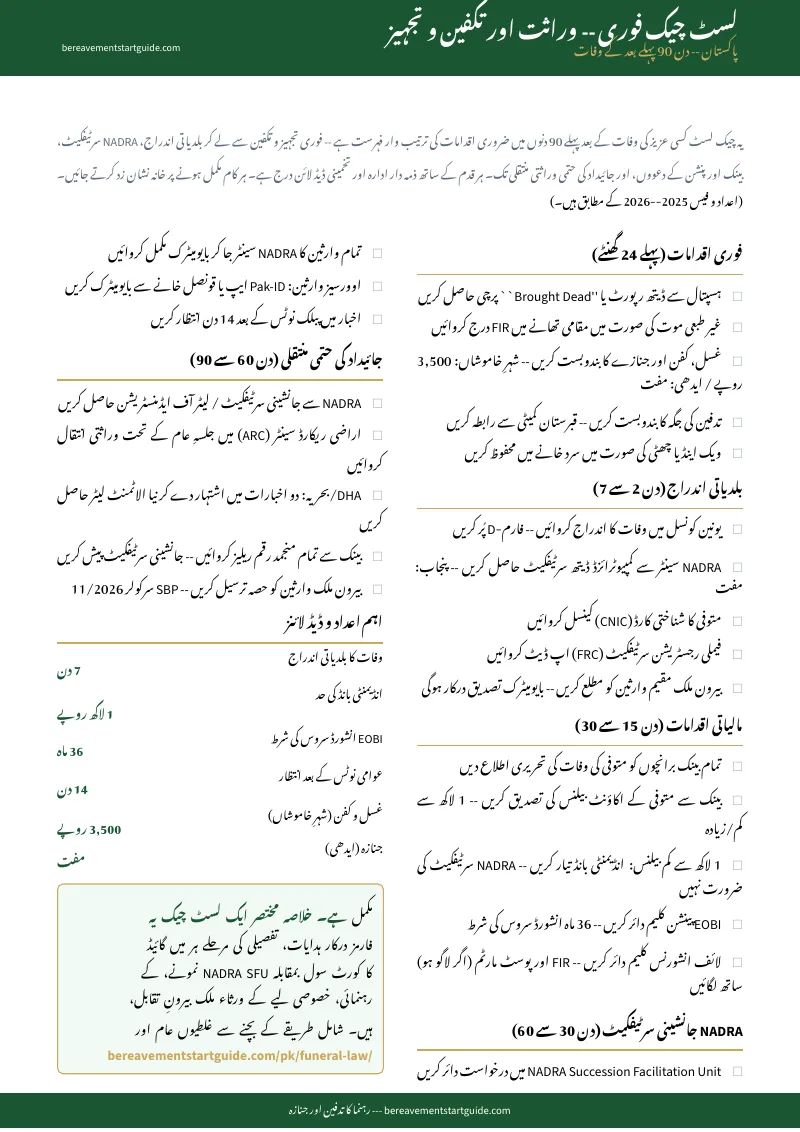 لسٹ چیک فوری -- وراثت اور تکفین و تجہیز
پاکستان -- دن 90 پہلے بعد کے وفات
bereavementstartguide.com
یہ چیک لسٹ کسی عزیز کی وفات کے بعد پہلے 90 دنوں میں ضروری اقدامات کی ترتیب وار فہرست ہے -- فوری تجہیز و تکفین سے لے کر بلدیاتی اندراج، NADRA سرٹیفکیٹ،
بینک اور پنشن کے دعووں، اور جائیداد کی حتمی وراثتی منتقلی تک۔ ہر قدم کے ساتھ ذمہ دار ادارہ اور تخمینی ڈیڈ لائن درج ہے۔ ہر کام مکمل ہونے پر خانہ نشان زد کرتے جائیں۔
(اعداد و فیس 2025--2026 کے مطابق ہیں۔)
فوری اقدامات (پہلے 24 گھنٹے)
□ ہسپتال سے ڈیتھ رپورٹ یا ``Brought Dead'' پرچی حاصل کریں
□ غیر طبعی موت کی صورت میں مقامی تھانے میں FIR درج کروائیں
□ غسل، کفن اور جنازے کا بندوبست کریں -- شہرِ خاموشاں: 3,500
روپے / ایدھی: مفت
□ تدفین کی جگہ کا بندوبست کریں -- قبرستان کمیٹی سے رابطہ کریں
□ ویک اینڈ یا چھٹی کی صورت میں سرد خانے میں محفوظ کریں
بلدیاتی اندراج (دن 2 سے 7)
□ یونین کونسل میں وفات کا اندراج کروائیں -- فارم-D پُر کریں
□ NADRA سینٹر سے کمپیوٹرائزڈ ڈیتھ سرٹیفکیٹ حاصل کریں -- پنجاب:
مفت
□ متوفی کا شناختی کارڈ (CNIC) کینسل کروائیں
□ فیملی رجسٹریشن سرٹیفکیٹ (FRC) اپ ڈیٹ کروائیں
□ بیرون ملک مقیم وارثین کو مطلع کریں -- بایومیٹرک تصدیق درکار ہوگی
مالیاتی اقدامات (دن 15 سے 30)
□ تمام بینک برانچوں کو متوفی کی وفات کی تحریری اطلاع دیں
□ بینک سے متوفی کے اکاؤنٹ بیلنس کی تصدیق کریں -- 1 لاکھ سے
کم/زیادہ
□ 1 لاکھ سے کم بیلنس: انڈیمنٹی بانڈ تیار کریں -- NADRA سرٹیفکیٹ کی
ضرورت نہیں
□ EOBI پینشن کلیم دائر کریں -- 36 ماہ انشورڈ سروس کی شرط
□ لائف انشورنس کلیم دائر کریں -- FIR اور پوسٹ مارٹم (اگر لاگو ہو)
ساتھ لگائیں
NADRA جانشینی سرٹیفکیٹ (دن 30 سے 60)
□ NADRA Succession Facilitation Unit میں درخواست دائر کریں
□ تمام وارثین کا NADRA سینٹر جا کر بایومیٹرک مکمل کروائیں
□ اوورسیز وارثین: Pak-ID ایپ یا قونصل خانے سے بایومیٹرک کریں
□ اخبار میں پبلک نوٹس کے بعد 14 دن انتظار کریں
جائیداد کی حتمی منتقلی (دن 60 سے 90)
□ NADRA سے جانشینی سرٹیفکیٹ / لیٹر آف ایڈمنسٹریشن حاصل کریں
□ اراضی ریکارڈ سینٹر (ARC) میں جلسہِ عام کے تحت وراثتی انتقال
کروائیں
□ DHA/بحریہ: دو اخبارات میں اشتہار دے کر نیا الاٹمنٹ لیٹر حاصل
کریں
□ بینک سے تمام منجمد رقم ریلیز کروائیں -- جانشینی سرٹیفکیٹ پیش کریں
□ بیرون ملک وارثین کو حصہ ترسیل کریں -- SBP سرکولر 11/2026
اہم اعداد و ڈیڈ لائنز
وفات کا بلدیاتی اندراج
7 دن
انڈیمنٹی بانڈ کی حد
1 لاکھ روپے
EOBI انشورڈ سروس کی شرط
36 ماہ
عوامی نوٹس کے بعد انتظار
14 دن
غسل و کفن (شہرِ خاموشاں)
3,500 روپے
جنازہ (ایدھی)
مفت
مکمل ہے۔ خلاصہ مختصر ایک لسٹ چیک یہ
فارمز درکار ہدایات، تفصیلی کی مرحلے ہر میں گائیڈ
کا کورٹ سول بمقابلہ NADRA SFU نمونے، کے
رہنمائی، خصوصی لیے کے ورثاء ملک بیرونِ تقابل،
ہیں۔ شامل طریقے کے بچنے سے غلطیوں عام اور
bereavementstartguide.com/pk/funeral-law/
رہنما کا تدفین اور جنازہ --- bereavementstartguide.com